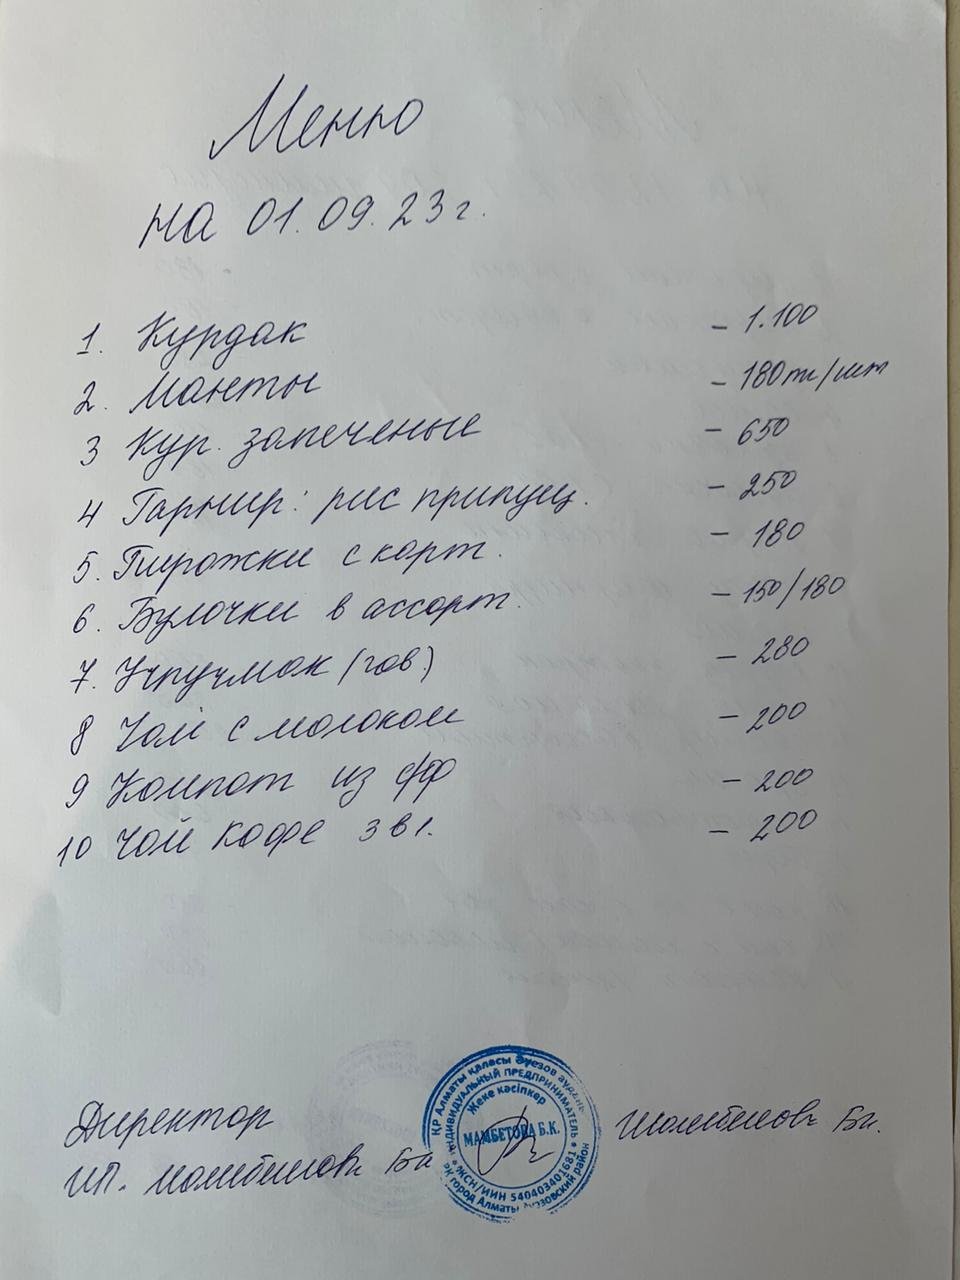 Меню
на 01.09.23г.
1. Курдак – 1.100
2. Манты – 180тг/шт
3 Кур. запеченые – 650
4 Гарнир: рис припущ. – 250
5. Пирожки с карт. – 180
6. Булочки в ассорт. – 150/180
7. Учпучмак (гов.) – 280
8 Чай с молоком – 200
9 Компот из с/ф – 200
10 Чай кофе 3 в 1. – 200
Директор
ИП.
ҚР Алматы қаласы Әуезов ауданы
ИНДИВИДУАЛЬНЫЙ ПРЕДПРИНИМАТЕЛЬ
Жеке кәсіпкер
МАМБЕТОВА Б.К.
ЖСН/ИИН 540403401681
РК город Алматы Ауэзовский район